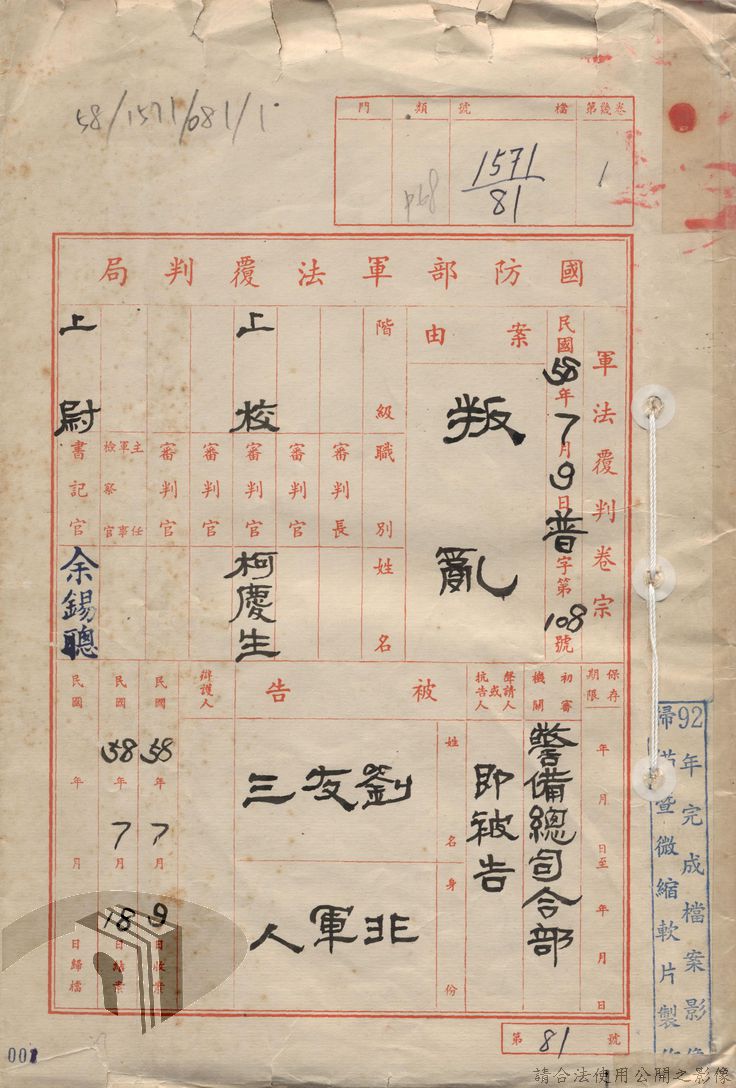 58/1571/081/1
第幾卷
檔號
類
門
1
1571
81
國防部軍法覆判局
軍法覆判卷宗
民國58年7月9日普字第108號
案由
叛亂
階級
職別
姓名
審判長
審判官
上校
審判官
柯慶生
審判官
審判官
主任軍事檢察官
上尉
書記官
余錫聰
保存期限
年月日至年月日
初審機關
警備總司令部
聲請人或抗告人
即被告
被告
姓名
劉友三
身份
非軍人
辯護人
民國58年7月9日收案
民國58年7月18日結案
民國年月日歸檔
第81號
92年完成檔案影像
掃描暨微縮軟片製作
001
請合法使用公開之影像